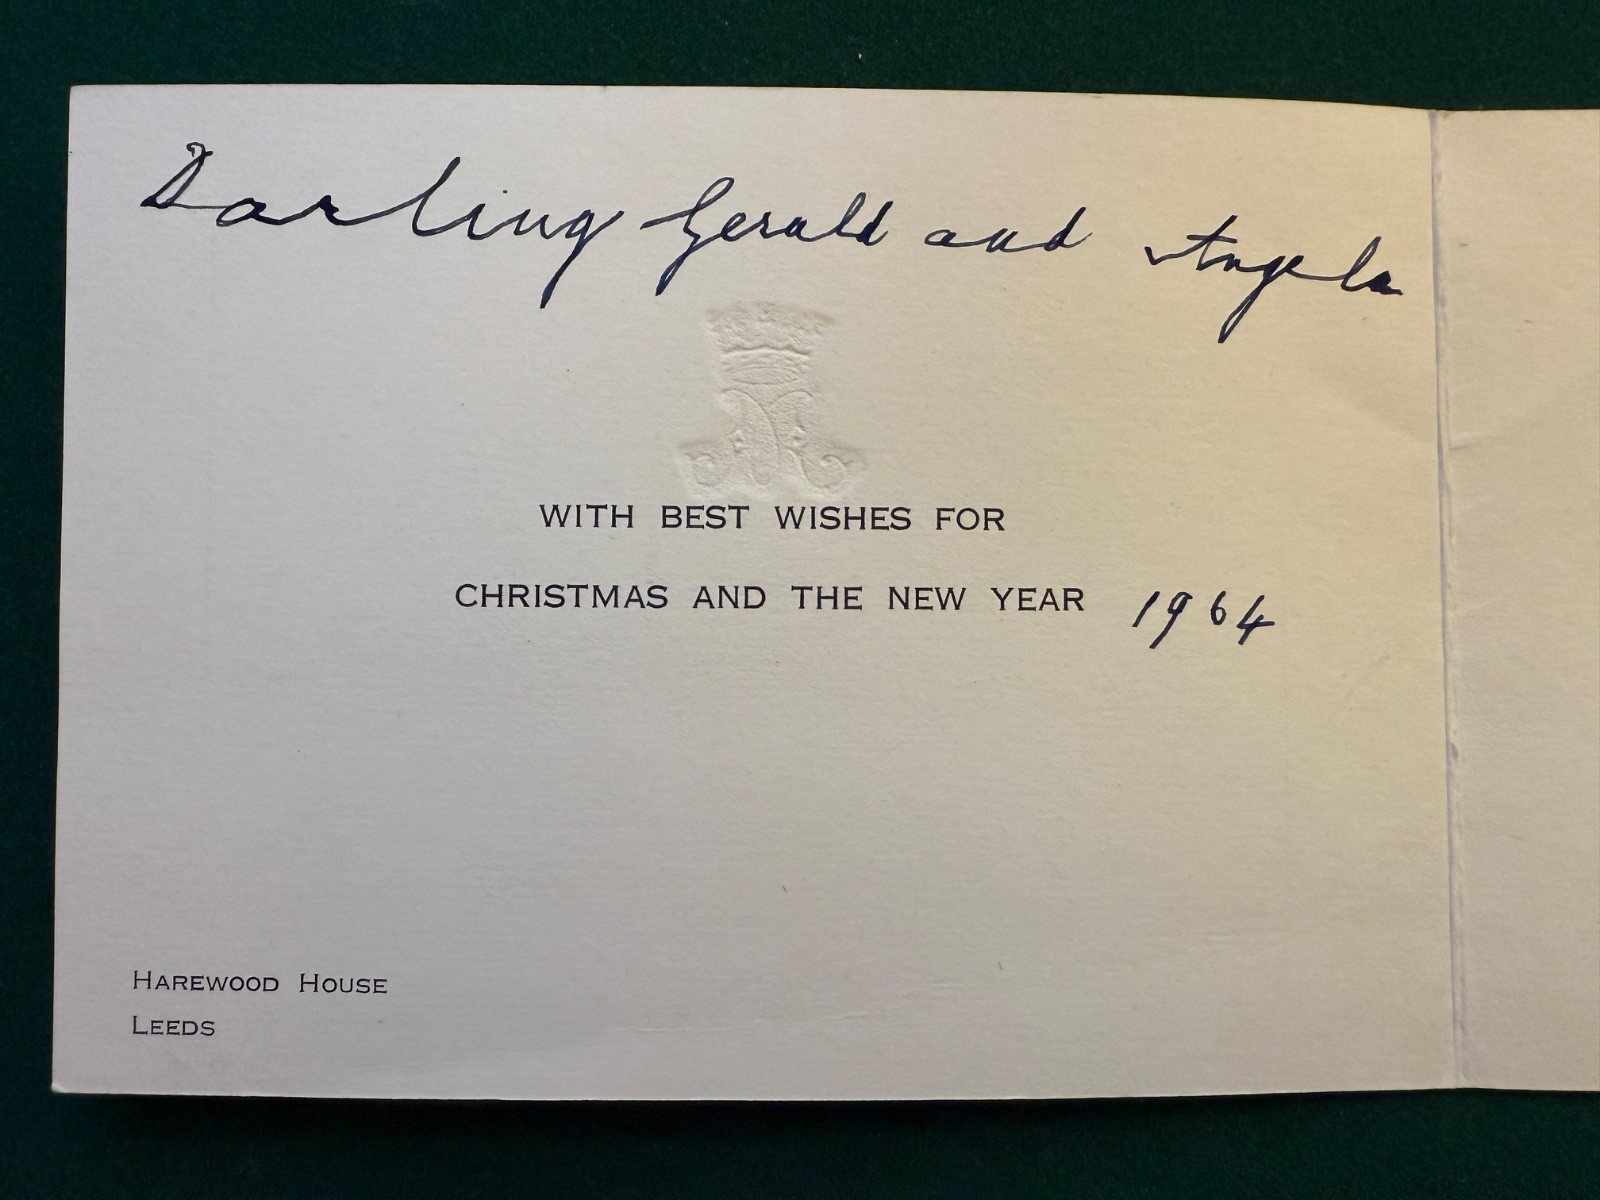 Darling Gerald and Angela
WITH BEST WISHES FOR
CHRISTMAS AND THE NEW YEAR 1964
HAREWOOD HOUSE
LEEDS